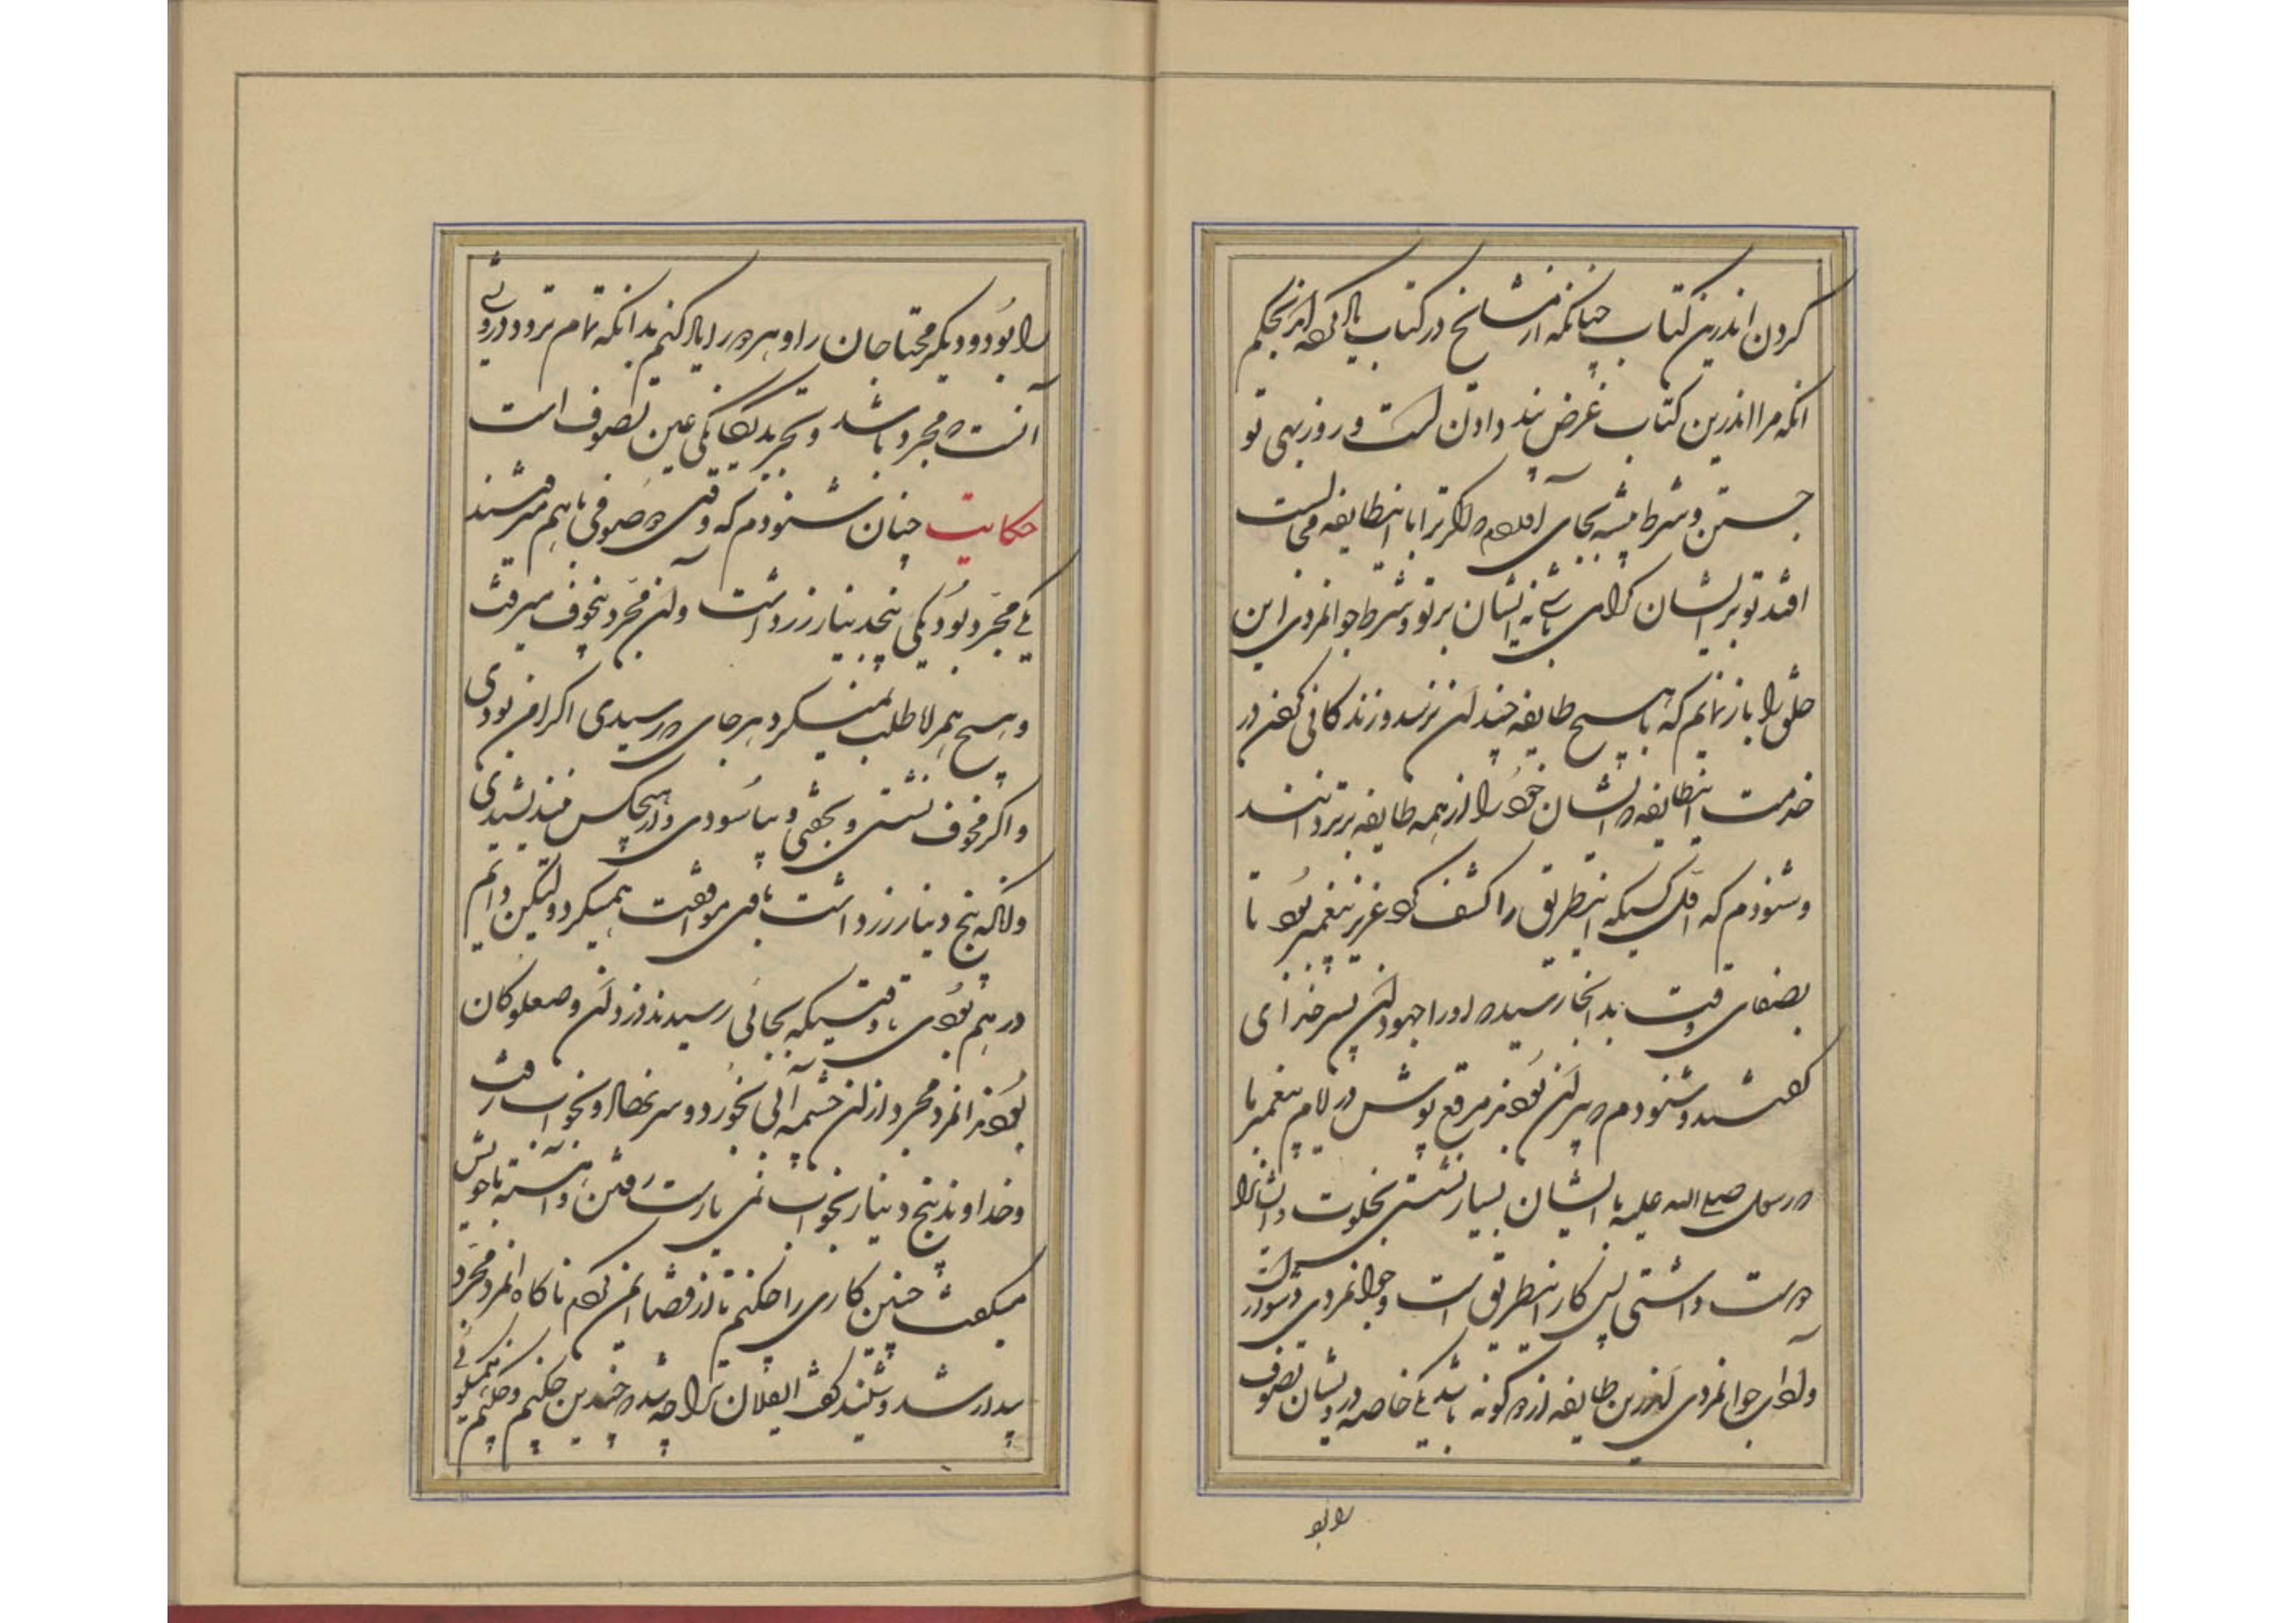 کردن اندرین کتاب چنانکه از مشایخ در کتاب یاد کرده‌اند بحکم
آنکه مرا اندرین کتاب غرض پند دادن است و روزبهی تو
جستن و شرط پیشه بجای آوردم که اگر ترا با اینطایفه مجالست
افتد تو بر ایشان گران باشی نه ایشان بر تو و شرط جوانمردی این
خلق را باز نمایم که بهیچ طایفه چندان نرسد و زندکانی کردن در
خدمت اینطایفه که ایشان خود را از همه طایفه برتر دانند
و شنودم که اول کسیکه اینطریق را کشف کرد عزیز پیغمبر بود تا
بصفای وقت بدانجا رسید که او را جهودان پسر خدای
گفتند و شنودم که پیران بودند مرقع پوش در ایام پیغمبر ما
که رسول صلی الله علیه با ایشان بسیار نشستی بخلوت و ایشانرا
دوست داشتی پس کار اینطریق است و جوانمردی
ولدای جوانمردی اندرین طایفه از دو کونه باشد یکی خاصه درویشان تصوف
را بو
را بود و دیکر محتاجان را و هر دو را یاد کنیم بدانکه تمام‌تر درویشی
آنست که مجرد باشد و تجرید یکانکی عین تصوف است
حکایت چنان شنودم که وقتی دو صوفی با هم میرفتند
یکی مجرد بود یکی پنجدینار زر داشت و آن مجرد بیخوف میرفت
و هیچ همراه طلب نمیکرد هر جای که رسیدی اکر امن بودی
و اکر مخوف نشستی و بخفتی و بیاسودی و از هیچکس نیندیشیدی
و آنکه پنج دینار زر داشت با وی موافقت همیکرد ولیکن دایم
در بیم بودی تا وقتیکه بجائی رسیدند دزدان و صعلوکان
بودند آنمرد مجرد از آن چشمه آبی بخورد و سر بنهاد و بخواب رفت
و خداوند پنج دینار بخواب نمی یارست رفتن و آهسته با خویش
میکفت چنین کاری را چکنم تا از قضا این مردم ناکاه آنمرد مجرد
بیدار شد و شنید کفت ایفلان ترا چه شده چندین چکنم و چکنم همیکوئی